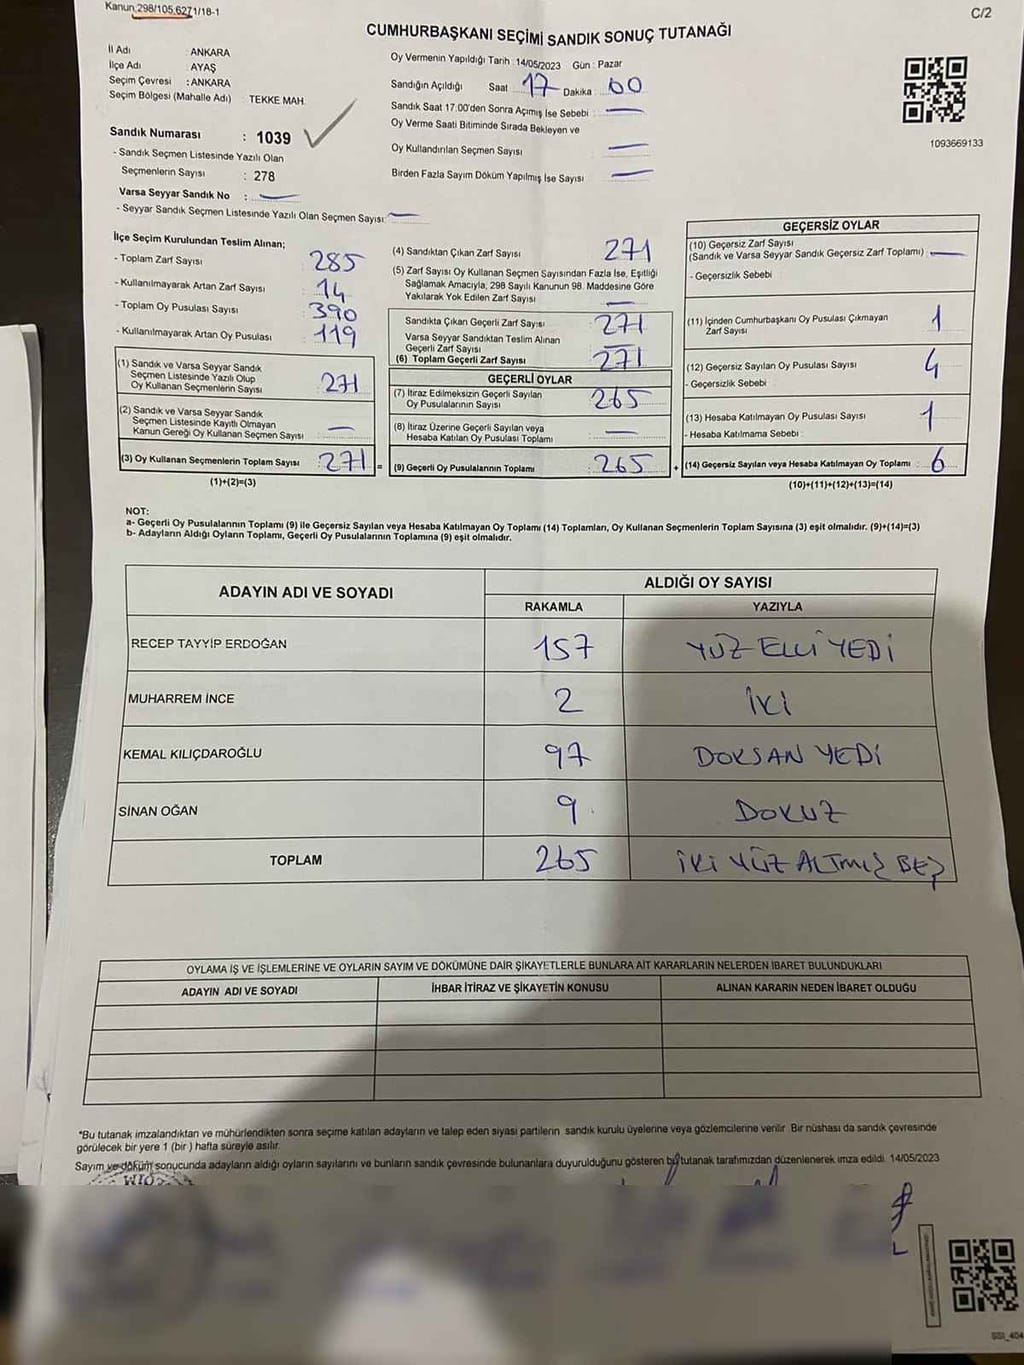 Kanun,298/105,6271/18-1
C/2
CUMHURBAŞKANI SEÇİMİ SANDIK SONUÇ TUTANAĞI
İl Adı : ANKARA
İlçe Adı : AYAŞ
Seçim Çevresi : ANKARA
Seçim Bölgesi (Mahalle Adı) : TEKKE MAH.
Oy Vermenin Yapıldığı Tarih : 14/05/2023 Gün : Pazar
Sandığın Açıldığı Saat 17 Dakika : 00
Sandık Saat 17.00'den Sonra Açımış İse Sebebi : —
Oy Verme Saati Bitiminde Sırada Bekleyen ve
Oy Kullandırılan Seçmen Sayısı —
Birden Fazla Sayım Döküm Yapılmış İse Sayısı —
1093669133
Sandık Numarası : 1039
- Sandık Seçmen Listesinde Yazılı Olan
Seçmenlerin Sayısı : 278
Varsa Seyyar Sandık No : —
- Seyyar Sandık Seçmen Listesinde Yazılı Olan Seçmen Sayısı: —
İlçe Seçim Kurulundan Teslim Alınan;
- Toplam Zarf Sayısı 285
- Kullanılmayarak Artan Zarf Sayısı 14
- Toplam Oy Pusulası Sayısı 390
- Kullanılmayarak Artan Oy Pusulası 119
(1) Sandık ve Varsa Seyyar Sandık
Seçmen Listesinde Yazılı Olup
Oy Kullanan Seçmenlerin Sayısı 271
(2) Sandık ve Varsa Seyyar Sandık
Seçmen Listesinde Kayıtlı Olmayan
Kanun Gereği Oy Kullanan Seçmen Sayısı —
(3) Oy Kullanan Seçmenlerin Toplam Sayısı : 271 =
(1)+(2)=(3)
(4) Sandıktan Çıkan Zarf Sayısı 271
(5) Zarf Sayısı Oy Kullanan Seçmen Sayısından Fazla İse, Eşitliği
Sağlamak Amacıyla, 298 Sayılı Kanunun 98. Maddesine Göre
Yakılarak Yok Edilen Zarf Sayısı —
Sandıkta Çıkan Geçerli Zarf Sayısı 271
Varsa Seyyar Sandıktan Teslim Alınan
Geçerli Zarf Sayısı —
(6) Toplam Geçerli Zarf Sayısı 271
GEÇERLİ OYLAR
(7) İtiraz Edilmeksizin Geçerli Sayılan
Oy Pusulalarının Sayısı 265
(8) İtiraz Üzerine Geçerli Sayılan veya
Hesaba Katılan Oy Pusulası Toplamı —
(9) Geçerli Oy Pusulalarının Toplamı 265 +
GEÇERSİZ OYLAR
(10) Geçersiz Zarf Sayısı
(Sandık ve Varsa Seyyar Sandık Geçersiz Zarf Toplamı) —
- Geçersizlik Sebebi :
(11) İçinden Cumhurbaşkanı Oy Pusulası Çıkmayan
Zarf Sayısı 1
(12) Geçersiz Sayılan Oy Pusulası Sayısı 4
- Geçersizlik Sebebi :
(13) Hesaba Katılmayan Oy Pusulası Sayısı 1
- Hesaba Katılmama Sebebi :
(14) Geçersiz Sayılan veya Hesaba Katılmayan Oy Toplamı : 6
(10)+(11)+(12)+(13)=(14)
NOT:
a- Geçerli Oy Pusulalarının Toplamı (9) ile Geçersiz Sayılan veya Hesaba Katılmayan Oy Toplamı (14) Toplamları, Oy Kullanan Seçmenlerin Toplam Sayısına (3) eşit olmalıdır. (9)+(14)=(3)
b- Adayların Aldığı Oyların Toplamı, Geçerli Oy Pusulalarının Toplamına (9) eşit olmalıdır.
ADAYIN ADI VE SOYADI
ALDIĞI OY SAYISI
RAKAMLA YAZIYLA
RECEP TAYYİP ERDOĞAN 157 YÜZ ELLİ YEDİ
MUHARREM İNCE 2 İKİ
KEMAL KILIÇDAROĞLU 97 DOKSAN YEDİ
SİNAN OĞAN 9 DOKUZ
TOPLAM 265 İKİ YÜZ ALTMIŞ BEŞ
OYLAMA İŞ VE İŞLEMLERİNE VE OYLARIN SAYIM VE DÖKÜMÜNE DAİR ŞİKAYETLERLE BUNLARA AİT KARARLARIN NELERDEN İBARET BULUNDUKLARI
ADAYIN ADI VE SOYADI İHBAR İTİRAZ VE ŞİKAYETİN KONUSU ALINAN KARARIN NEDEN İBARET OLDUĞU
*Bu tutanak imzalandıktan ve mühürlendikten sonra seçime katılan adayların ve talep eden siyasi partilerin sandık kurulu üyelerine veya gözlemcilerine verilir. Bir nüshası da sandık çevresinde
görülecek bir yere 1 (bir ) hafta süreyle asılır.
Sayım ve döküm sonucunda adayların aldığı oyların sayılarını ve bunların sandık çevresinde bulunanlara duyurulduğunu gösteren bu tutanak tarafımızdan düzenlenerek imza edildi. 14/05/2023